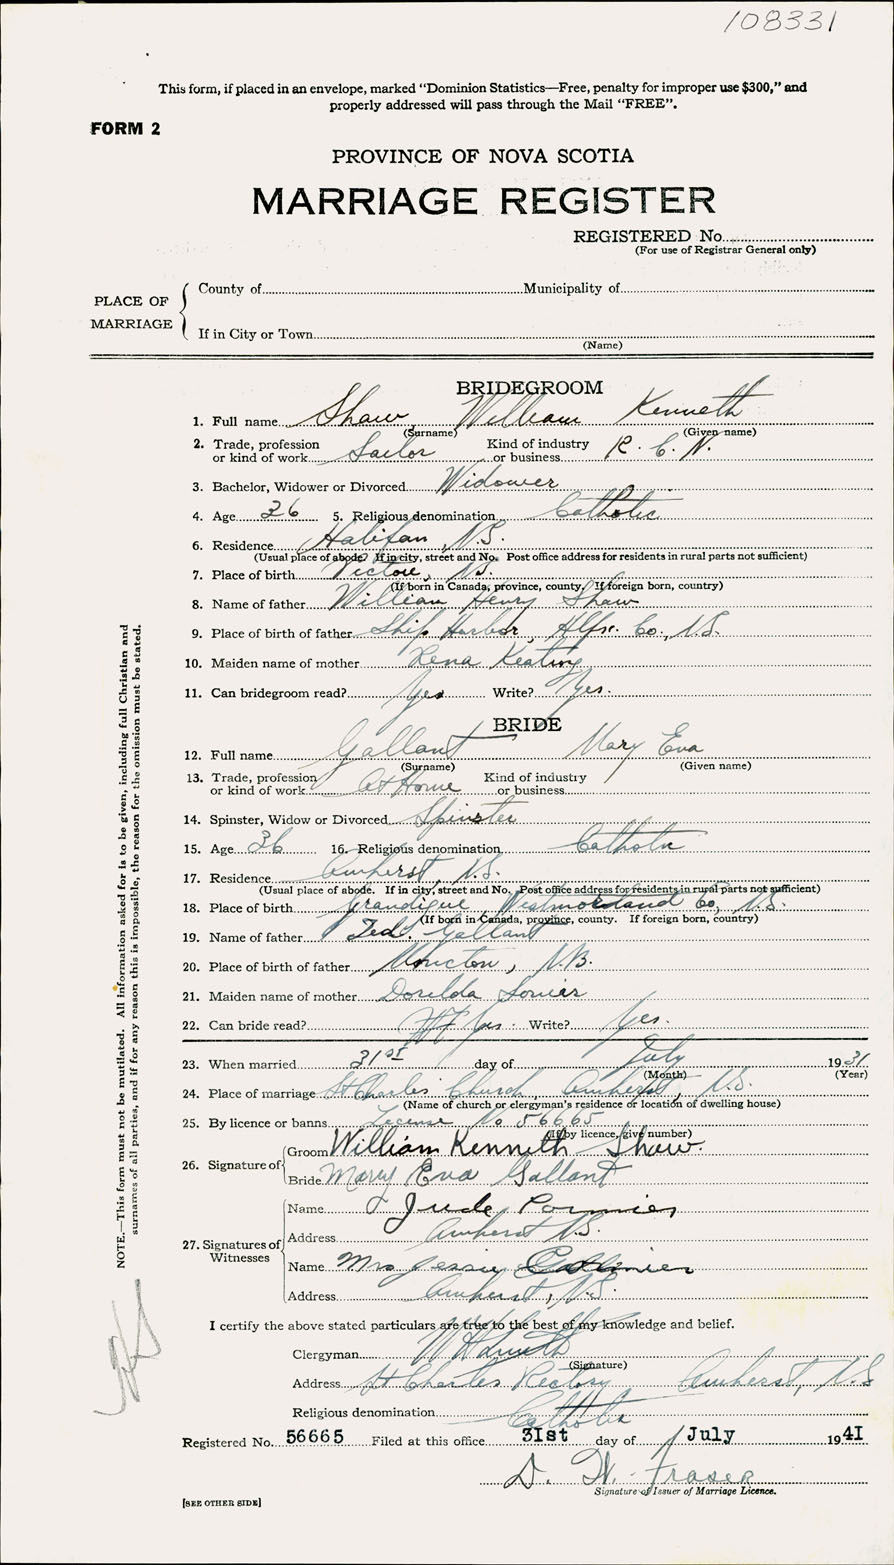 108331
This form, if placed in an envelope, marked "Dominion Statistics—Free, penalty for improper use $300," and
properly addressed will pass through the Mail "FREE".
FORM 2
PROVINCE OF NOVA SCOTIA
MARRIAGE REGISTER
REGISTERED No.
(For use of Registrar General only)
PLACE OF MARRIAGE
County of Municipality of
If in City or Town
(Name)
BRIDEGROOM
1. Full name Shaw William Kenneth
(Surname) (Given name)
2. Trade, profession or kind of work Sailor Kind of industry or business R. C. N.
3. Bachelor, Widower or Divorced Widower
4. Age 36 5. Religious denomination Catholic
6. Residence Halifax, N.S.
(Usual place of abode? If in city, street and No. Post office address for residents in rural parts not sufficient)
7. Place of birth
(If born in Canada, province, county. If foreign born, country)
8. Name of father William Henry Shaw
9. Place of birth of father Ship Harbor, Hlfx. Co., N.S.
10. Maiden name of mother Rena Keating
11. Can bridegroom read? Yes Write? Yes.
BRIDE
12. Full name Gallant Mary Eva
(Surname) (Given name)
13. Trade, profession or kind of work At Home Kind of industry or business
14. Spinster, Widow or Divorced Spinster
15. Age 36 16. Religious denomination Catholic
17. Residence Amherst, N.S.
(Usual place of abode. If in city, street and No. Post office address for residents in rural parts not sufficient)
18. Place of birth Grandigue, Westmoreland Co,
(If born in Canada, province, county. If foreign born, country)
19. Name of father Ted. Gallant
20. Place of birth of father Moncton, N.B.
21. Maiden name of mother Dorilda
22. Can bride read? Yes. Write? Yes.
23. When married 31st day of July 1931
(Month) (Year)
24. Place of marriage St Charles Church, Amherst, N.S.
(Name of church or clergyman's residence or location of dwelling house)
25. By licence or banns License No 56665
(If by licence, give number)
26. Signature of
Groom William Kenneth Shaw.
Bride Mary Eva Gallant
27. Signatures of Witnesses
Name Jude
Address Amherst N.S.
Name Mrs Jessie
Address Amherst, N.S.
I certify the above stated particulars are true to the best of my knowledge and belief.
Clergyman
(Signature)
Address St Charles Rectory Amherst, N.S
Religious denomination Catholic
Registered No. 56665 Filed at this office 31st day of July 1941
D. W. Fraser
Signature of Issuer of Marriage Licence.
[SEE OTHER SIDE]
NOTE.—This form must not be mutilated. All information asked for is to be given, including full Christian and
surnames of all parties, and if for any reason this is impossible, the reason for the omission must be stated.